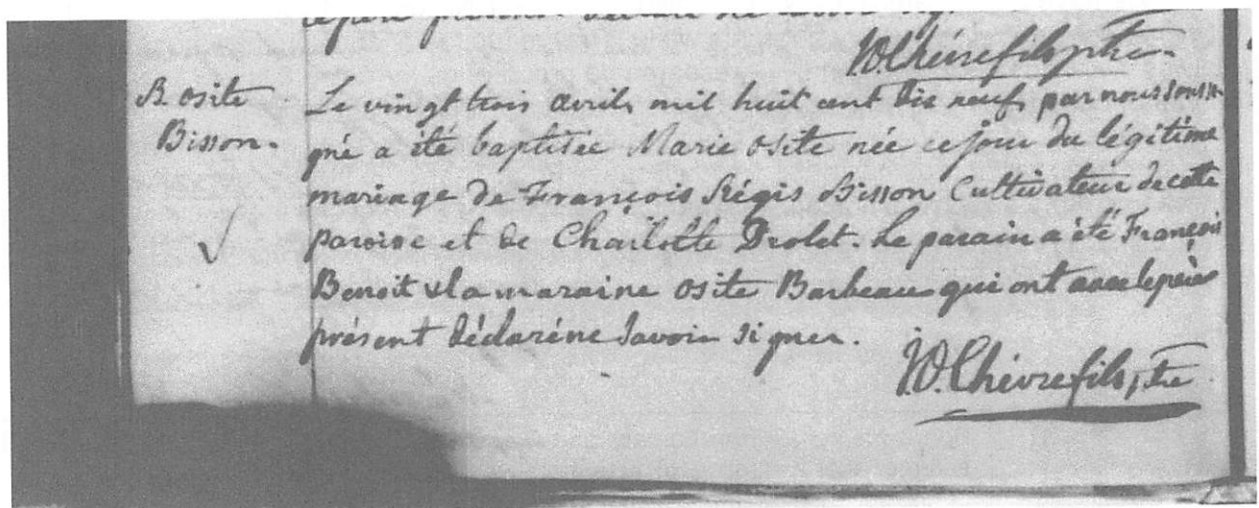 présent déclaré ne savoir
W Chèvrefils ptre.
B. osite
Bisson.
Le vingt trois avril mil huit cent dix neuf par nous sousi-
gné a été baptisée Marie osite née ce jour du légitime
mariage de François Régis Bisson Cultivateur de cette
paroisse et de Charlotte Drolet. Le parain a été François
Benoit & la maraine osite Barbeau qui ont avec le père
présent déclaré ne savoir signer.
Chèvrefils, ptre